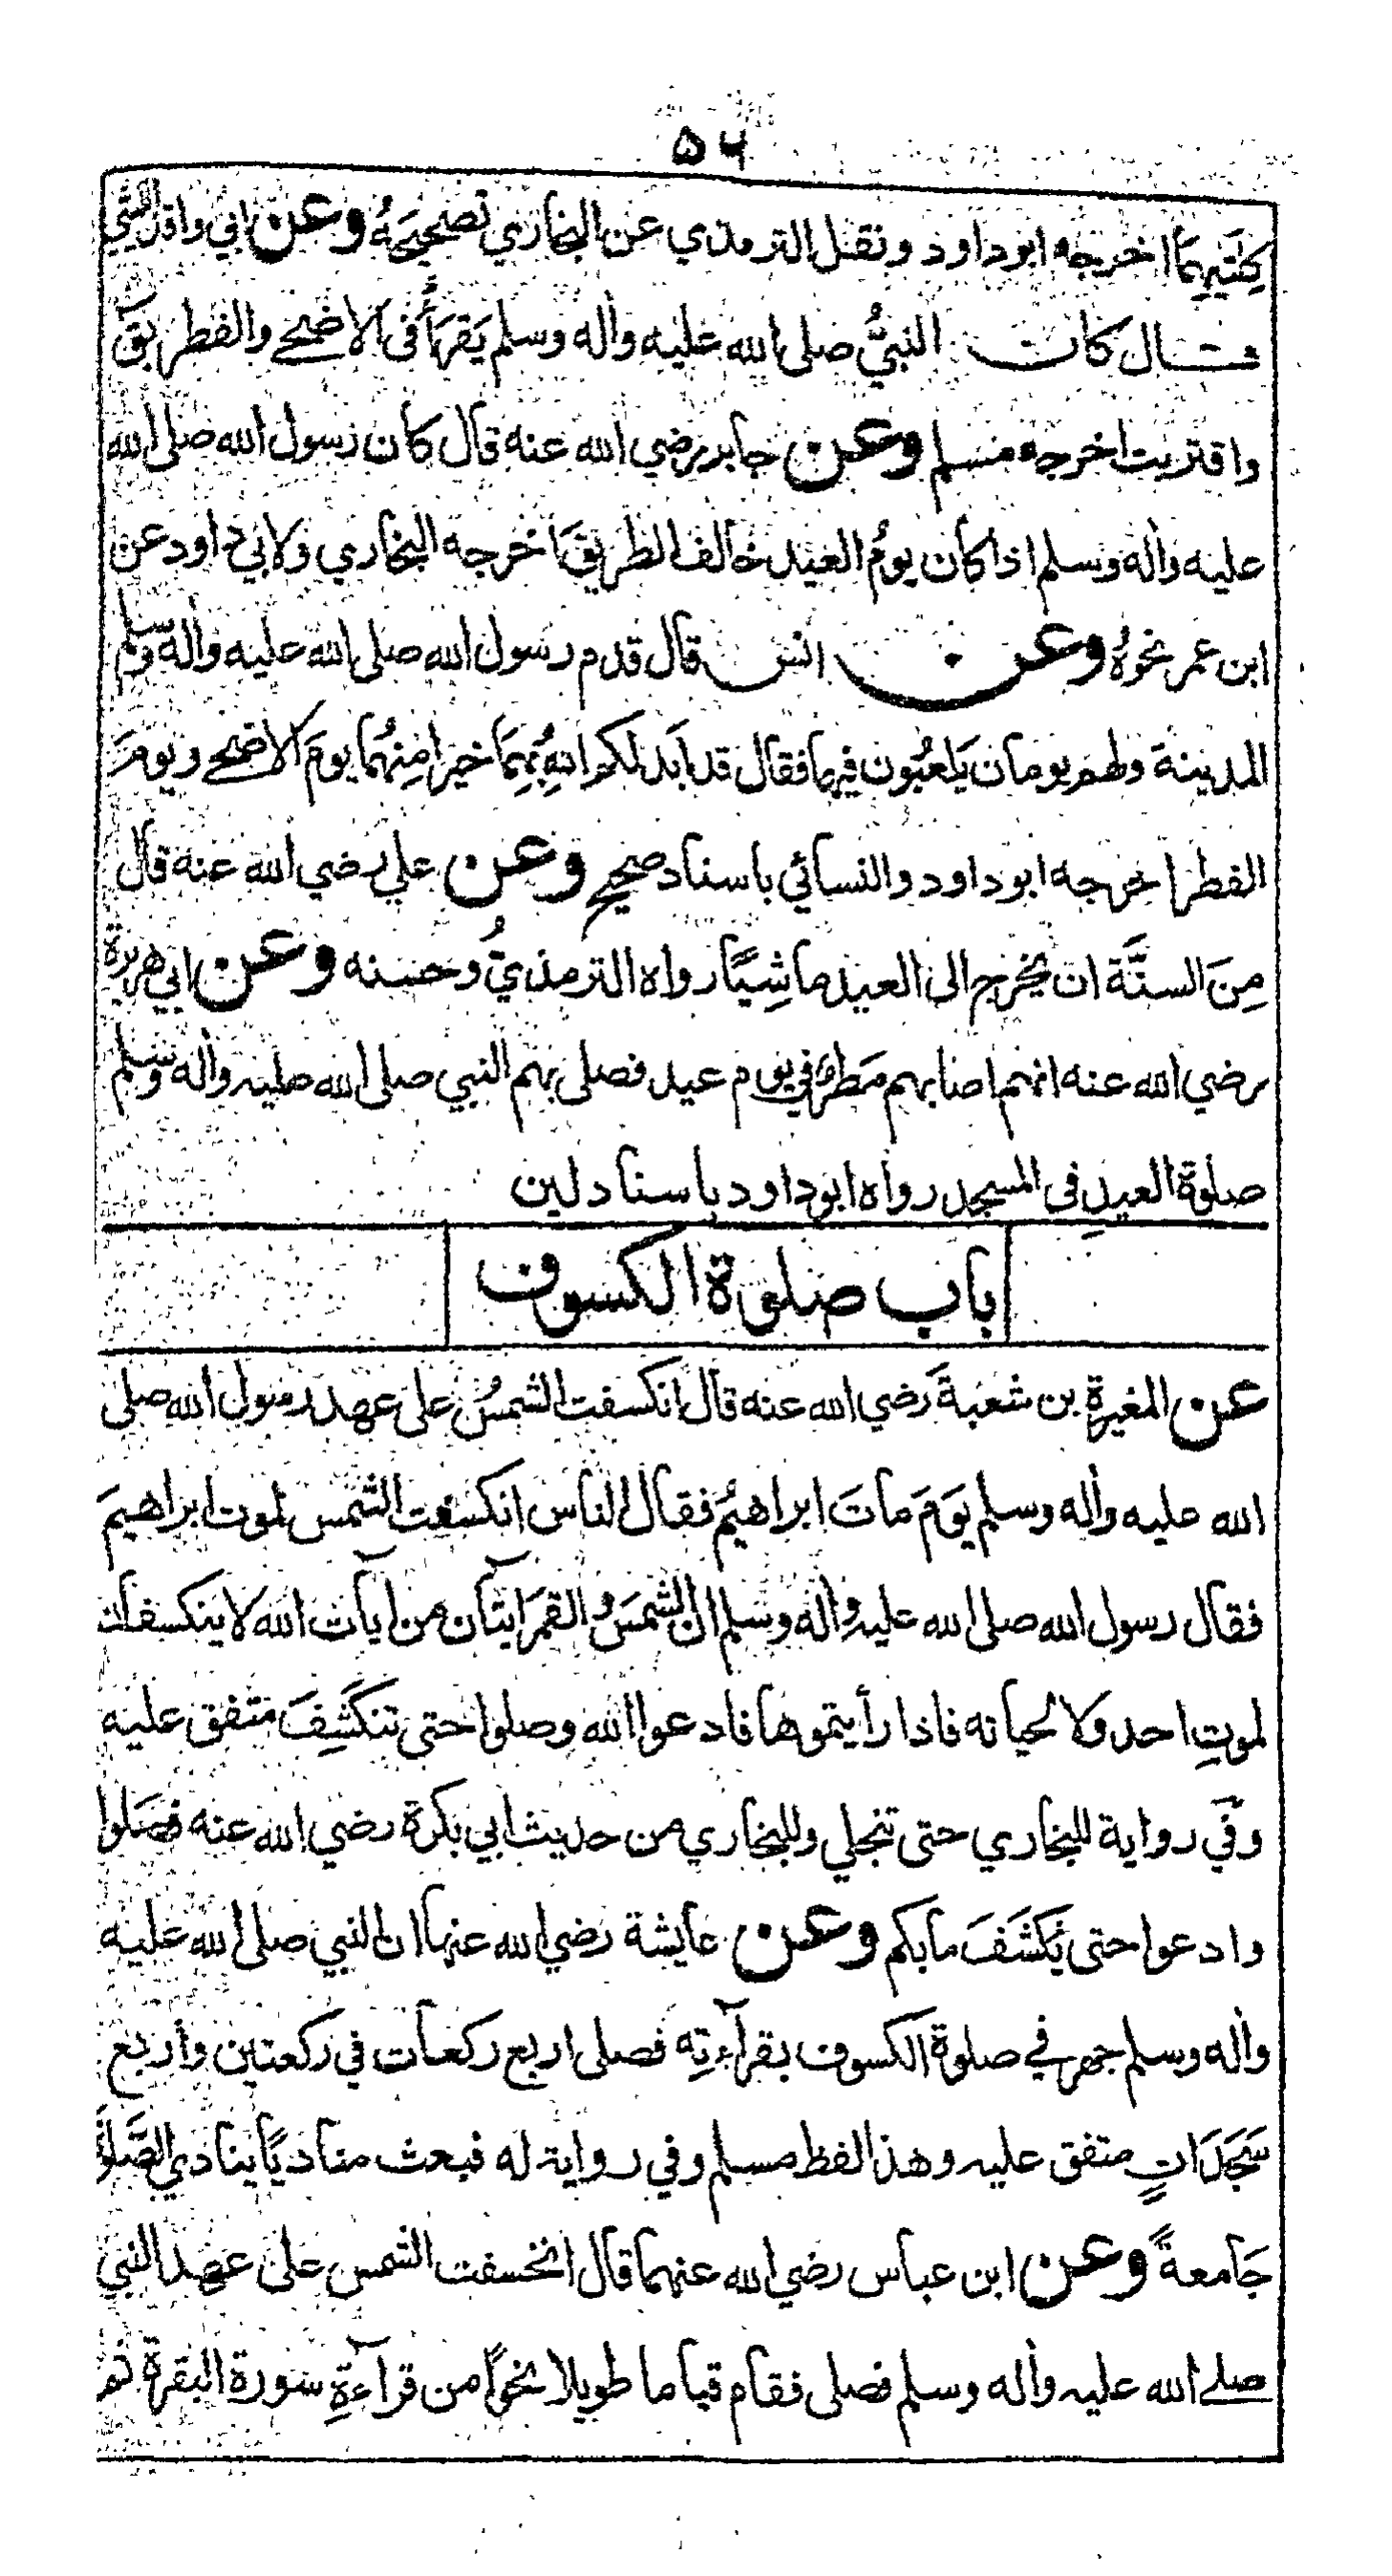 ۵۶
كِلتَيهِمَا اخرجه ابوداود ونقل الترمذي عن البخاري تصحيحَهُ وعن ابي واقد الليثي
قال كان النبيُّ صلى الله عليه واله وسلم يَقرَأُ فى الاضحٰے والفطر بق
واقتربت اخرجه مسلم وعن جابر رضي الله عنه قال كان رسول الله صلى الله
عليه واٰله وسلم اذا كان يومُ العيد خالف الطريقَ اخرجه البخاري ولابي داود عن
ابن عمر نحوهُ وعن انس قال قدم رسول الله صلى الله عليه واٰله وسلم
المدينة ولهم يومان يَلعَبُون فيهما فقال قد ابَدلكم اللهُ بهِمَا خيرا مِنهُما يومَ الاضحٰے ويومَ
الفطر اخرجه ابوداود والنسائي باسناد صحيح وعن علي رضي الله عنه قال
مِنَ السنَّة ان يخرج الى العيد ماشِيًا رواه الترمذيُّ وحسنه وعن ابي هريرة
رضي الله عنه انهم اصابهم مَطرٌ في يوم عيد فصلى بهم النبي صلى الله عليه واٰله وسلم
صلوة العيدِ فى المسجد رواه ابوداود باسناد لين
باب صلوة الكسوف
عن المغيرةِ بن شعبةَ رضي الله عنه قال انكسفت الشمسُ على عهد رسول الله صلى
الله عليه واٰله وسلم يَومَ ماتَ ابراهيمُ فقال الناس انكسفت الشمس لموت ابراهيمَ
فقال رسول الله صلى الله عليه واٰله وسلم ان الشمسَ والقمرَ ايتَان من آيات الله لا ينكسفان
لموتِ احد ولا لحياته فاذا رأيتموها فادعوا الله وصلوا حتى تنكَشِفَ متفق عليه
وفي رواية للبخاري حتى تنجلي وللبخاري من حديث ابي بكرة رضي الله عنه فصَلوا
وادعوا حتى يُكشَفَ ما بكم وعن عايشة رضي الله عنها ان النبي صلى الله عليه
واٰله وسلم جهر في صلوة الكسوف بقرآءتِه فصلى اربع ركعات في ركعتين وأربع
سَجَدَاتٍ متفق عليه وهذا لفظ مسلم وفي رواية له فبعث مناديًا ينادي الصَّلوةُ
جَامعةً وعن ابن عباس رضي الله عنهما قال انخسفت الشمس على عهد النبي
صلے الله عليه واٰله وسلم فصلى فقام قياما طويلا نحوًا من قرآءةِ سورة البقرة ثم